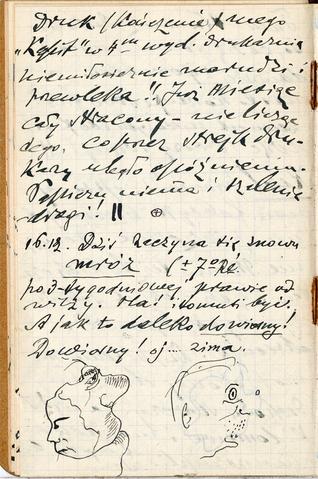 Druk (kończenie) mego
"Kajet" w 4m wyd. drukarnia
niemiłosiernie marudzi i
przewleka!! Już miesiąc
cały stracony – nie licząc
tego, co przez strejk dru-
karzy uległo opóźnieniu.
Papieru niema i szalenie
drogi! ||
16.12. Dziś zaczyna się znowu
mróz (± 7° Ré
po 3-tygodniowej prawie od-
wilży. Ha! i to musi być.
A jak to daleko do wiosny!
Do wiosny! oj... zima.